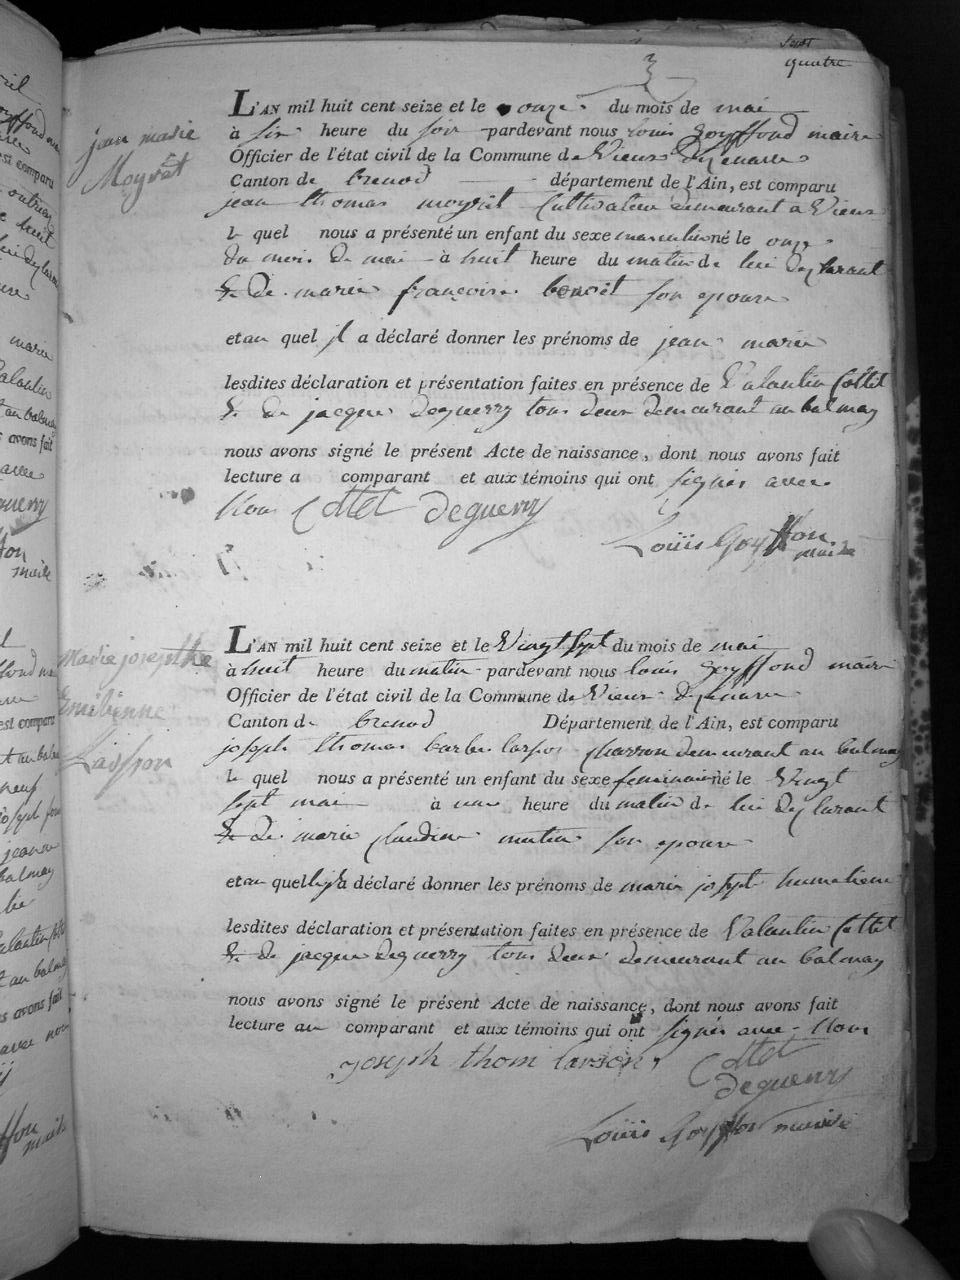 quatre
3
jean marie
Moynet
L'AN mil huit cent seize et le onze du mois de mai
à six heure du soir pardevant nous louis goyffond maire
Officier de l'état civil de la Commune de Vieux
Canton de brenod département de l'Ain, est comparu
jean thomas Cultivateur demeurant a Vieux
le quel nous a présenté un enfant du sexe masculin né le onze
du mois de mai à huit heure du matin de lui déclarant
& de marie françoise benoît son epouse
et au quel il a déclaré donner les prénoms de jean marie
lesdites déclaration et présentation faites en présence de Valantin Cottet
& de jacque deguerry tous deux demeurant au balmay
nous avons signé le présent Acte de naissance, dont nous avons fait
lecture a comparant et aux témoins qui ont signés avec
Nous Cottet deguerry
Louis Goyffon
maire
Marie josephthe
Emilienne
L'AN mil huit cent seize et le Vingt sept du mois de mai
à huit heure du matin pardevant nous louis goyffond maire
Officier de l'état civil de la Commune de Vieux
Canton de brenod Département de l'Ain, est comparu
joseph thomas charron demeurant au balmay
le quel nous a présenté un enfant du sexe feminain né le Vingt
sept mai à une heure du matin de lui déclarant
& de marie claudine son epouse
et au quel il a déclaré donner les prénoms de marie
lesdites déclaration et présentation faites en présence de Valantin Cottet
& de jacque deguerry tous deux demeurant au balmay
nous avons signé le présent Acte de naissance, dont nous avons fait
lecture au comparant et aux témoins qui ont signés avec Nous
joseph thom larson Cottet
deguerry
Louis Goyffon maire